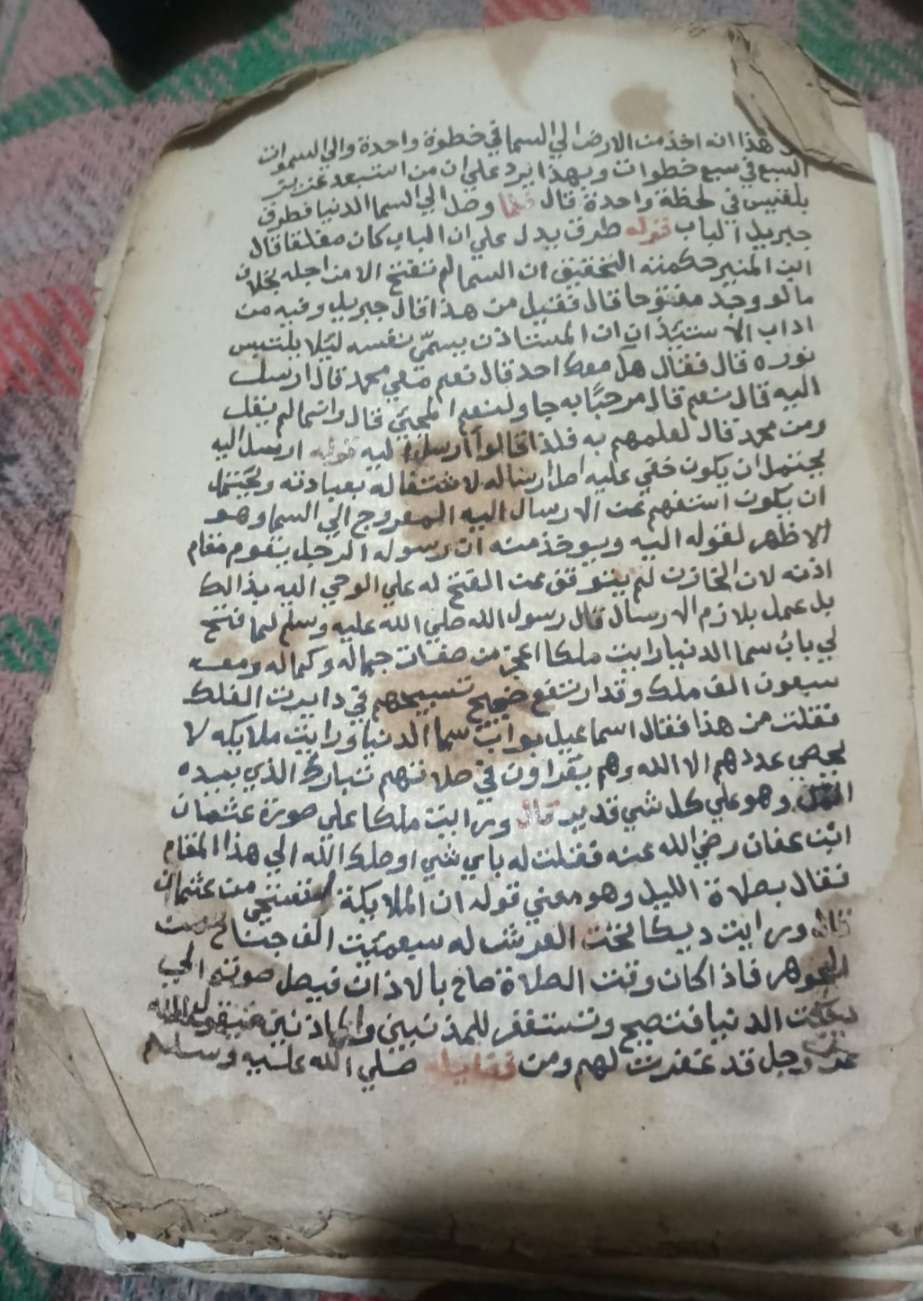 وهذا انه اخذ من الارض الي السما في خطوة واحدة والي السموات
السبع في سبع خطوات وبهذا يرد علي ان من استبعد عرير
بلقيس في لحظة واحدة قال فلما وصل الي السما الدنيا فطرق
جبريل الباب قوله طرق يدل علي ان الباب كان مغلقا قال
ابن المنير حكمته التحقيق ان السما لم تفتح الا من اجله بخلاف
ما لو وجد مفتوحا قال فقيل من هذا قال جبريل وفيه من
اداب الاستئذان ان المستاذن يسمي نفسه ليلا يلتبس
نوره قال فقال هل معك احد قال نعم معي محمد قال ارسل
اليه قال نعم قال مرحبًا به جا ولنعم المجئي قال وانما لم يقل
ومن محمد قال لعلمهم به فلذا قالوا أارسل اليه قوله ارسل اليه
يحتمل ان يكون خفي عليه اصل ارساله لاشتغاله بعبادته ويحتمل
ان يكون استفهم عن الارسال اليه المعروج الي السما وهو
الاظهر لقوله اليه ويوخذ منه ان رسول الرجل يقوم مقام
اذنه لان الخازن لم يتوقف عن الفتح له علي الوحي اليه بذالك
بل عمل بلازم الارسال قال رسول الله صلي الله عليه وسلم لما فتح
لي باب سما الدنيا رايت ملكا اعجز من صفات جماله وكماله ومعه
سبعون الف ملك وقد ارتفع ضجيج تسبيحهم في دايرت الفلك
فقلت من هذا فقال اسماعيل بواب سما الدنيا ورايت ملايكه لا
يحصي عددهم الا الله وهم يقراون في صلاتهم تبارك الذي بيده
الملك وهو علي كل شي قدير قال ورايت ملكا علي صورة عثمان
ابن عفان رضي الله عنه فقلت له باي شي اوصلك الله الي هذا المقام
فقال بصلاة الليل وهو معني قوله ان الملايكة لتستحي من عثمان
قال ورايت ديكا تحت العرش له سبعمئيت الف جناح من
الجوهر فاذا كان وقت الصلاة صاح بالاذان فيصل صوته الي
ديكت الدنيا فتصيح وتستغفر للمذنبين والماذنين فيقول الله
عز وجل قد غفرت لهم ومن فضايله صلي الله عليه وسلم